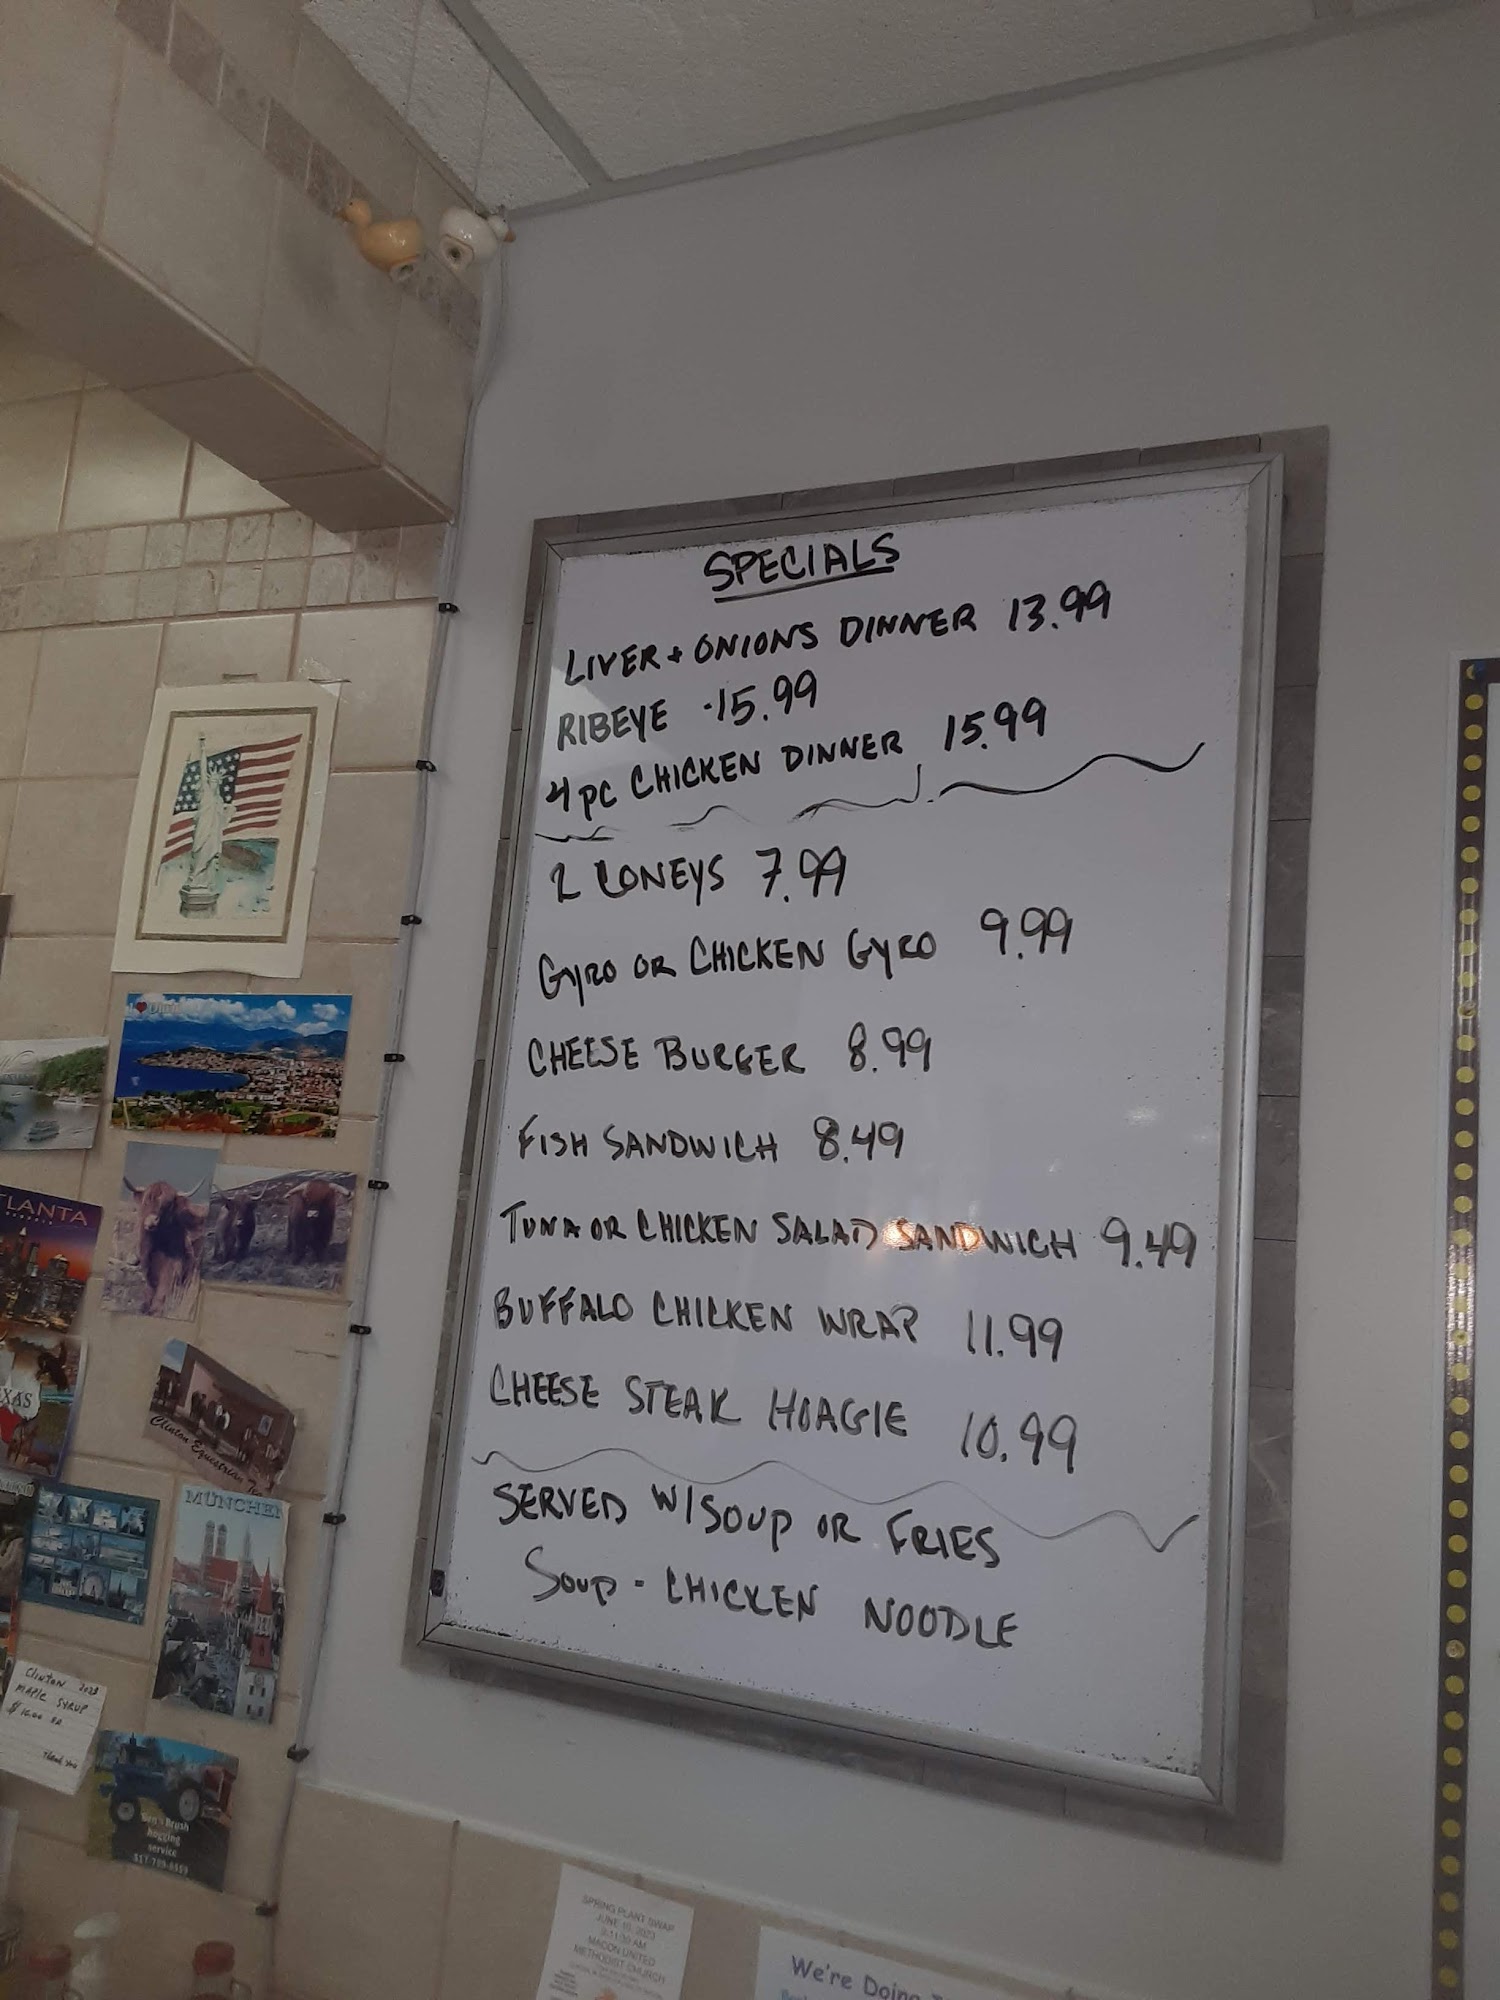 SPECIALS
LIVER + ONIONS DINNER 13.99
RIBEYE -15.99
4 PC CHICKEN DINNER 15.99
2 CONEYS 7.99
GYRO OR CHICKEN GYRO 9.99
CHEESE BURGER 8.99
FISH SANDWICH 8.49
TUNA OR CHICKEN SALAD SANDWICH 9.49
BUFFALO CHICKEN WRAP 11.99
CHEESE STEAK HOAGIE 10.99
SERVED W/SOUP OR FRIES
SOUP - CHICKEN NOODLE
TLANTA
XAS
Clinton Equestrian
MÜNCHEN
CLINTON 2023
MAPLE SYRUP
$16.00
Thank you
Brush
hogging
service
SPRING PLANT SWAP
JUNE 10, 2023
9-11:30 AM
MACON UNITED
METHODIST CHURCH
We're Doing